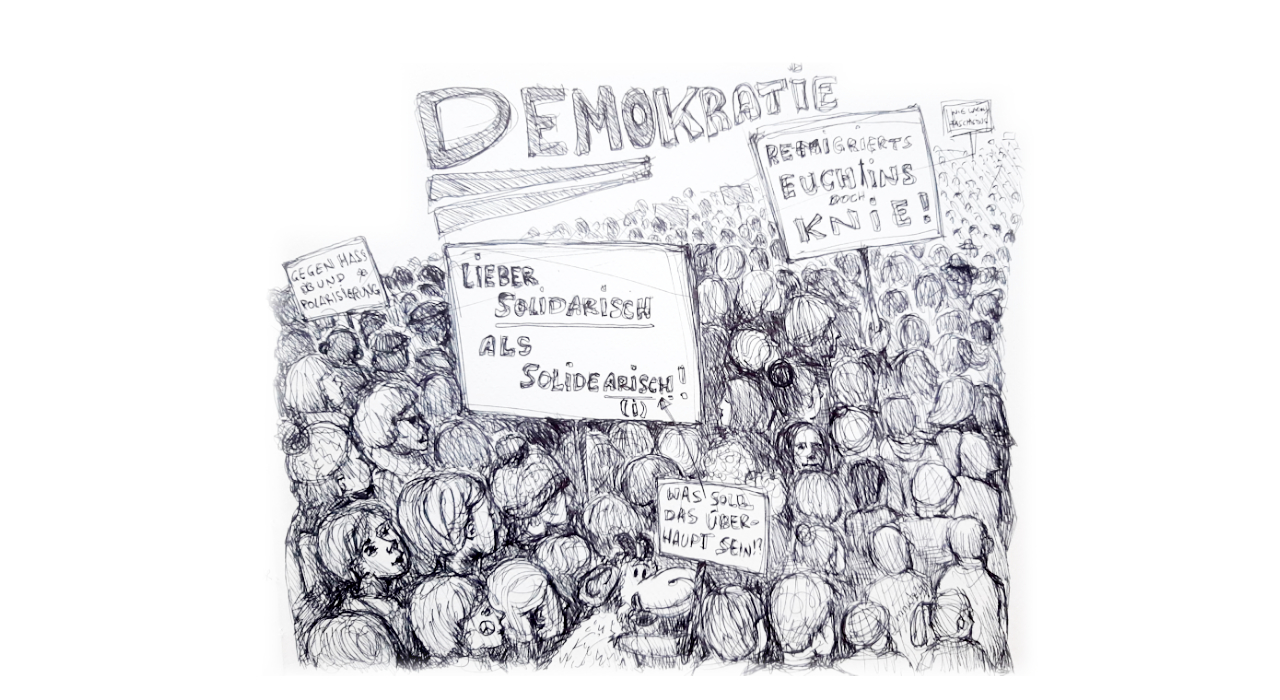 DEMOKRATIE
REMIGRIERTS
EUCH INS
DOCH
KNIE!
GEGEN HASS
UND
POLARISIERUNG
LIEBER
SOLIDARISCH
ALS
SOLIDEARISCH!
(i)
WAS SOLL
DAS ÜBER-
HAUPT SEIN!?